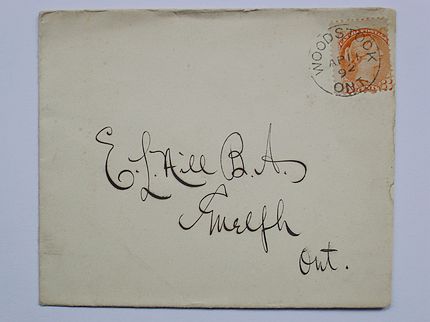 WOODSTOCK
AP 1
92
ONT
E. L. Hill B.A.
Guelph
Ont.